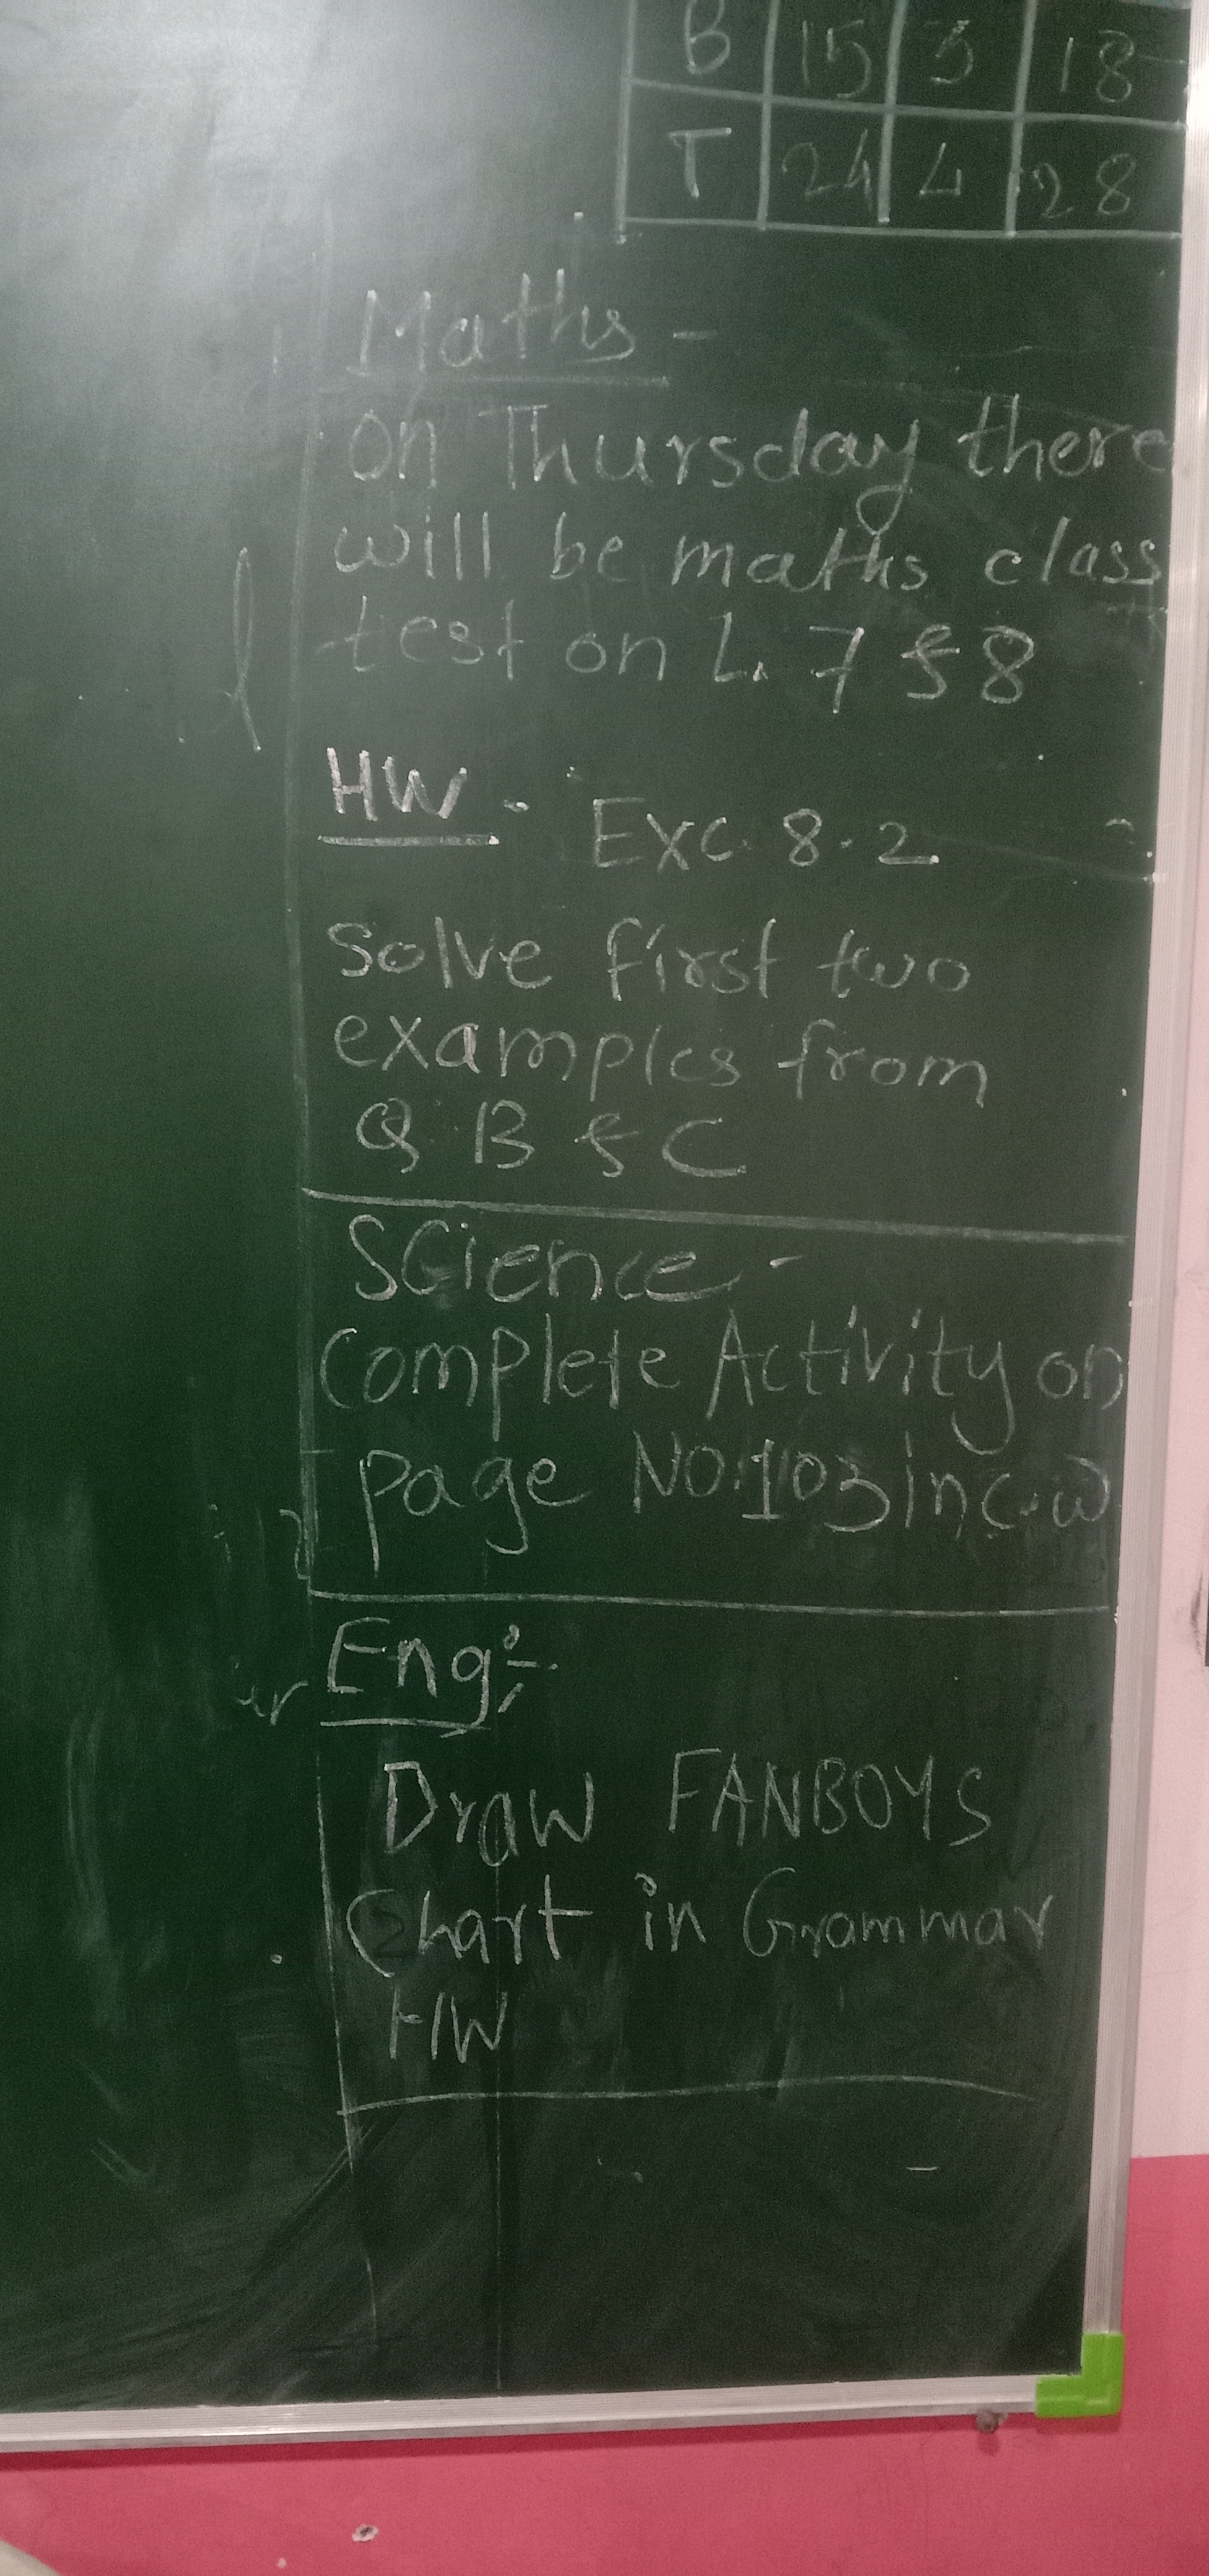 B 15 3 18
T 24 4 28
Maths -
on Thursday there
will be maths class
test on L. 7 & 8
HW - Exc. 8.2
Solve first two
examples from
Q B & C
Science -
Complete Activity on
page No:103 in c.w
Eng:-
Draw FANBOYS
Chart in Grammar
HW